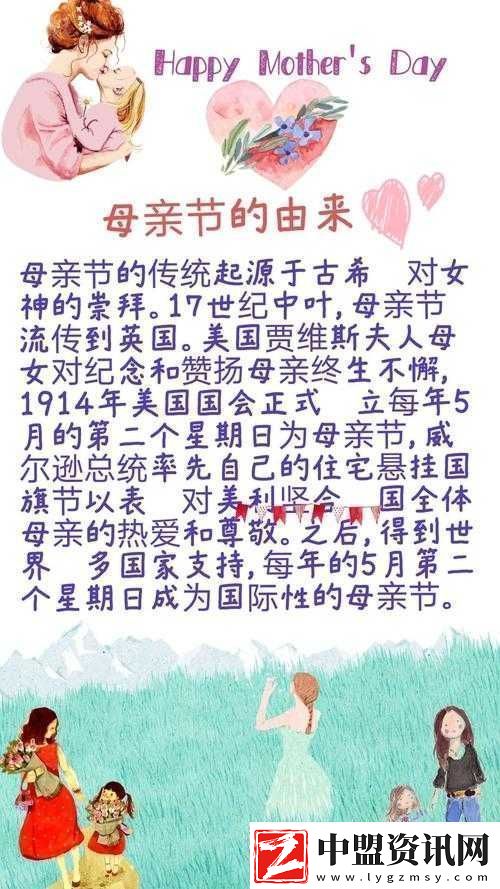 Happy Mother's Day
母亲节的由来
母亲节的传统起源于古希 对女
神的崇拜。17世纪中叶,母亲节
流传到英国。美国贾维斯夫人母
女对纪念和赞扬母亲终生不懈,
1914年美国国会正式 立每年5
月的第二个星期日为母亲节,威
尔逊总统率先自己的住宅悬挂国
旗节以表 对美利坚合 国全体
母亲的热爱和尊敬。之后,得到世
界 多国家支持,每年的5月第二
个星期日成为国际性的母亲节。
中盟资讯网
www.lygzmsy.com